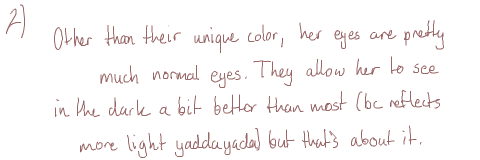 2)
Other than their unique color, her eyes are pretty
much normal eyes. They allow her to see
in the dark a bit better than most (bc reflects
more light yaddayada) but that's about it.